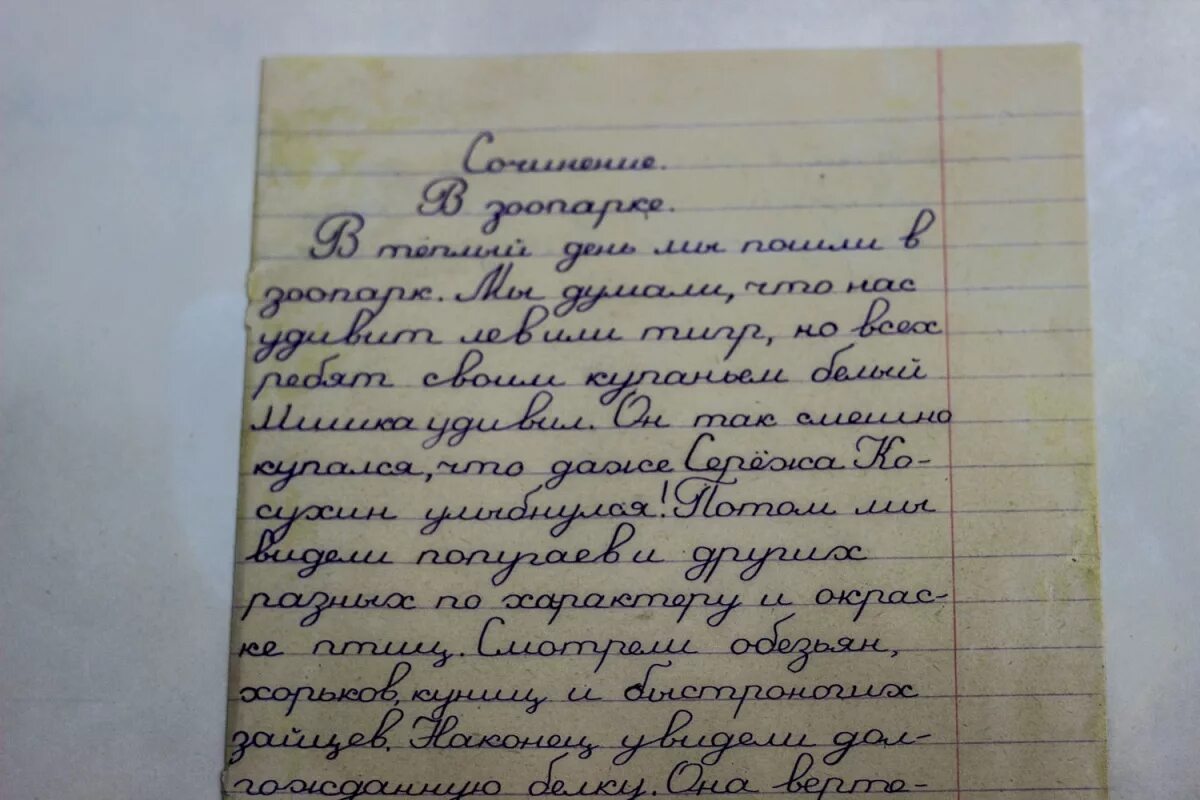 Сочинение.
В зоопарке.
В тёплый день мы пошли в
зоопарк. Мы думали, что нас
удивит лев или тигр, но всех
ребят своим купаньем белый
Мишка удивил. Он так смешно
купался, что даже Серёжа Ко-
сухин улыбнулся! Потом мы
видели попугаев и других
разных по характеру и окрас-
ке птиц. Смотрели обезьян,
хорьков, куниц и быстроногих
зайцев. Наконец увидели дол-
гожданную белку. Она верте-